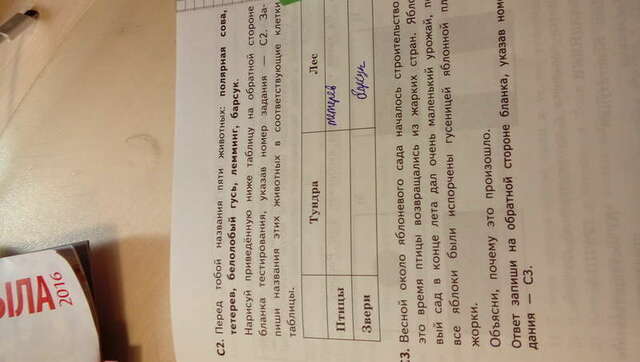 ЫЛА
2016
С2. Перед тобой названия пяти животных: полярная сова,
тетерев, белолобый гусь, лемминг, барсук.
Нарисуй приведённую ниже таблицу на обратной стороне
бланка тестирования, указав номер задания — С2. За-
пиши названия этих животных в соответствующие клетки
таблицы.
Тундра Лес
Птицы тетерев
Звери барсук
С3. Весной около яблоневого сада началось строительство
это время птицы возвращались из жарких стран. Ябло
вый сад в конце лета дал очень маленький урожай, по
все яблоки были испорчены гусеницей яблонной пл
жорки.
Объясни, почему это произошло.
Ответ запиши на обратной стороне бланка, указав номе
дания — С3.